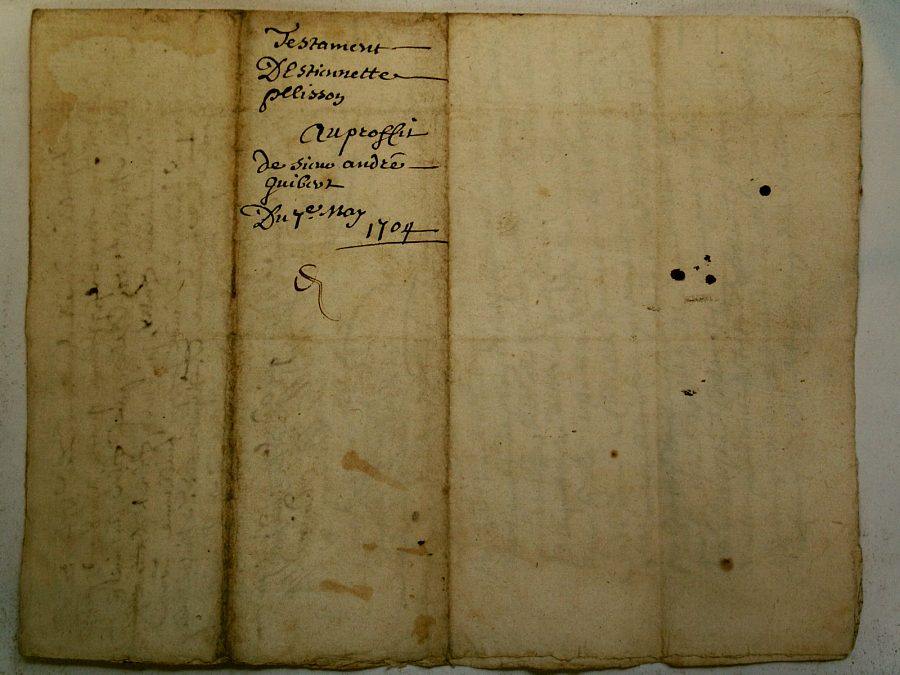 Testament
DEstiennette
pellisson
Auproffit
de sieur andré
guibert
Du 7e. May
1704